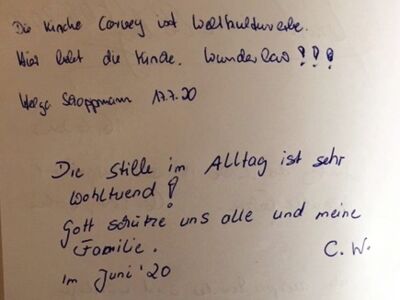 Die Kirche Corvey ist Weltkulturerbe.
Hier lebt die Kirche. Wunderbar!!!
Helga Schoppmann 17.7.20
Die Stille im Alltag ist sehr
wohltuend!
Gott schütze uns alle und meine
Familie. C.W.
im Juni '20